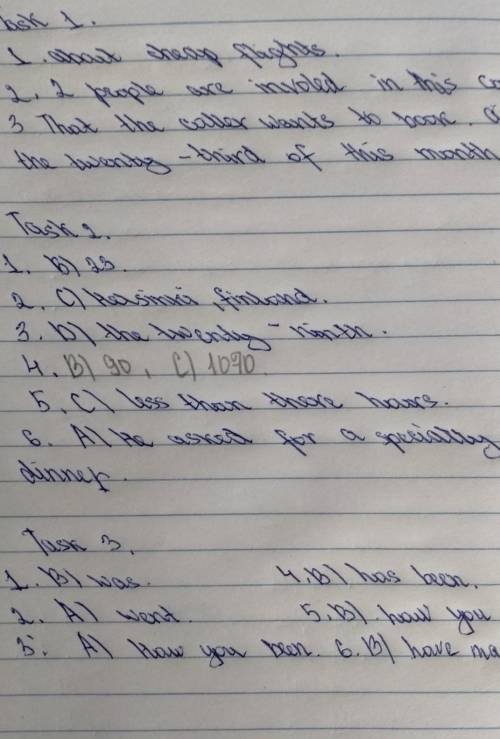 Task 1.
1. about cheap flights.
2. 2 people are involed in this co
3 That the caller wants to book.
the twenty-third of this month
Task 2.
1. B) 23.
2. C) Helsinki, finland.
3. D) the twenty-ninth.
4. B) 90, C) 1090.
5. C) less than there hours.
6. A) He asked for a specially
dinner.
Task 3.
1. B) was. 4. B) has been.
2. A) went. 5. B). have you
3. A) have you been. 6. B) have ma